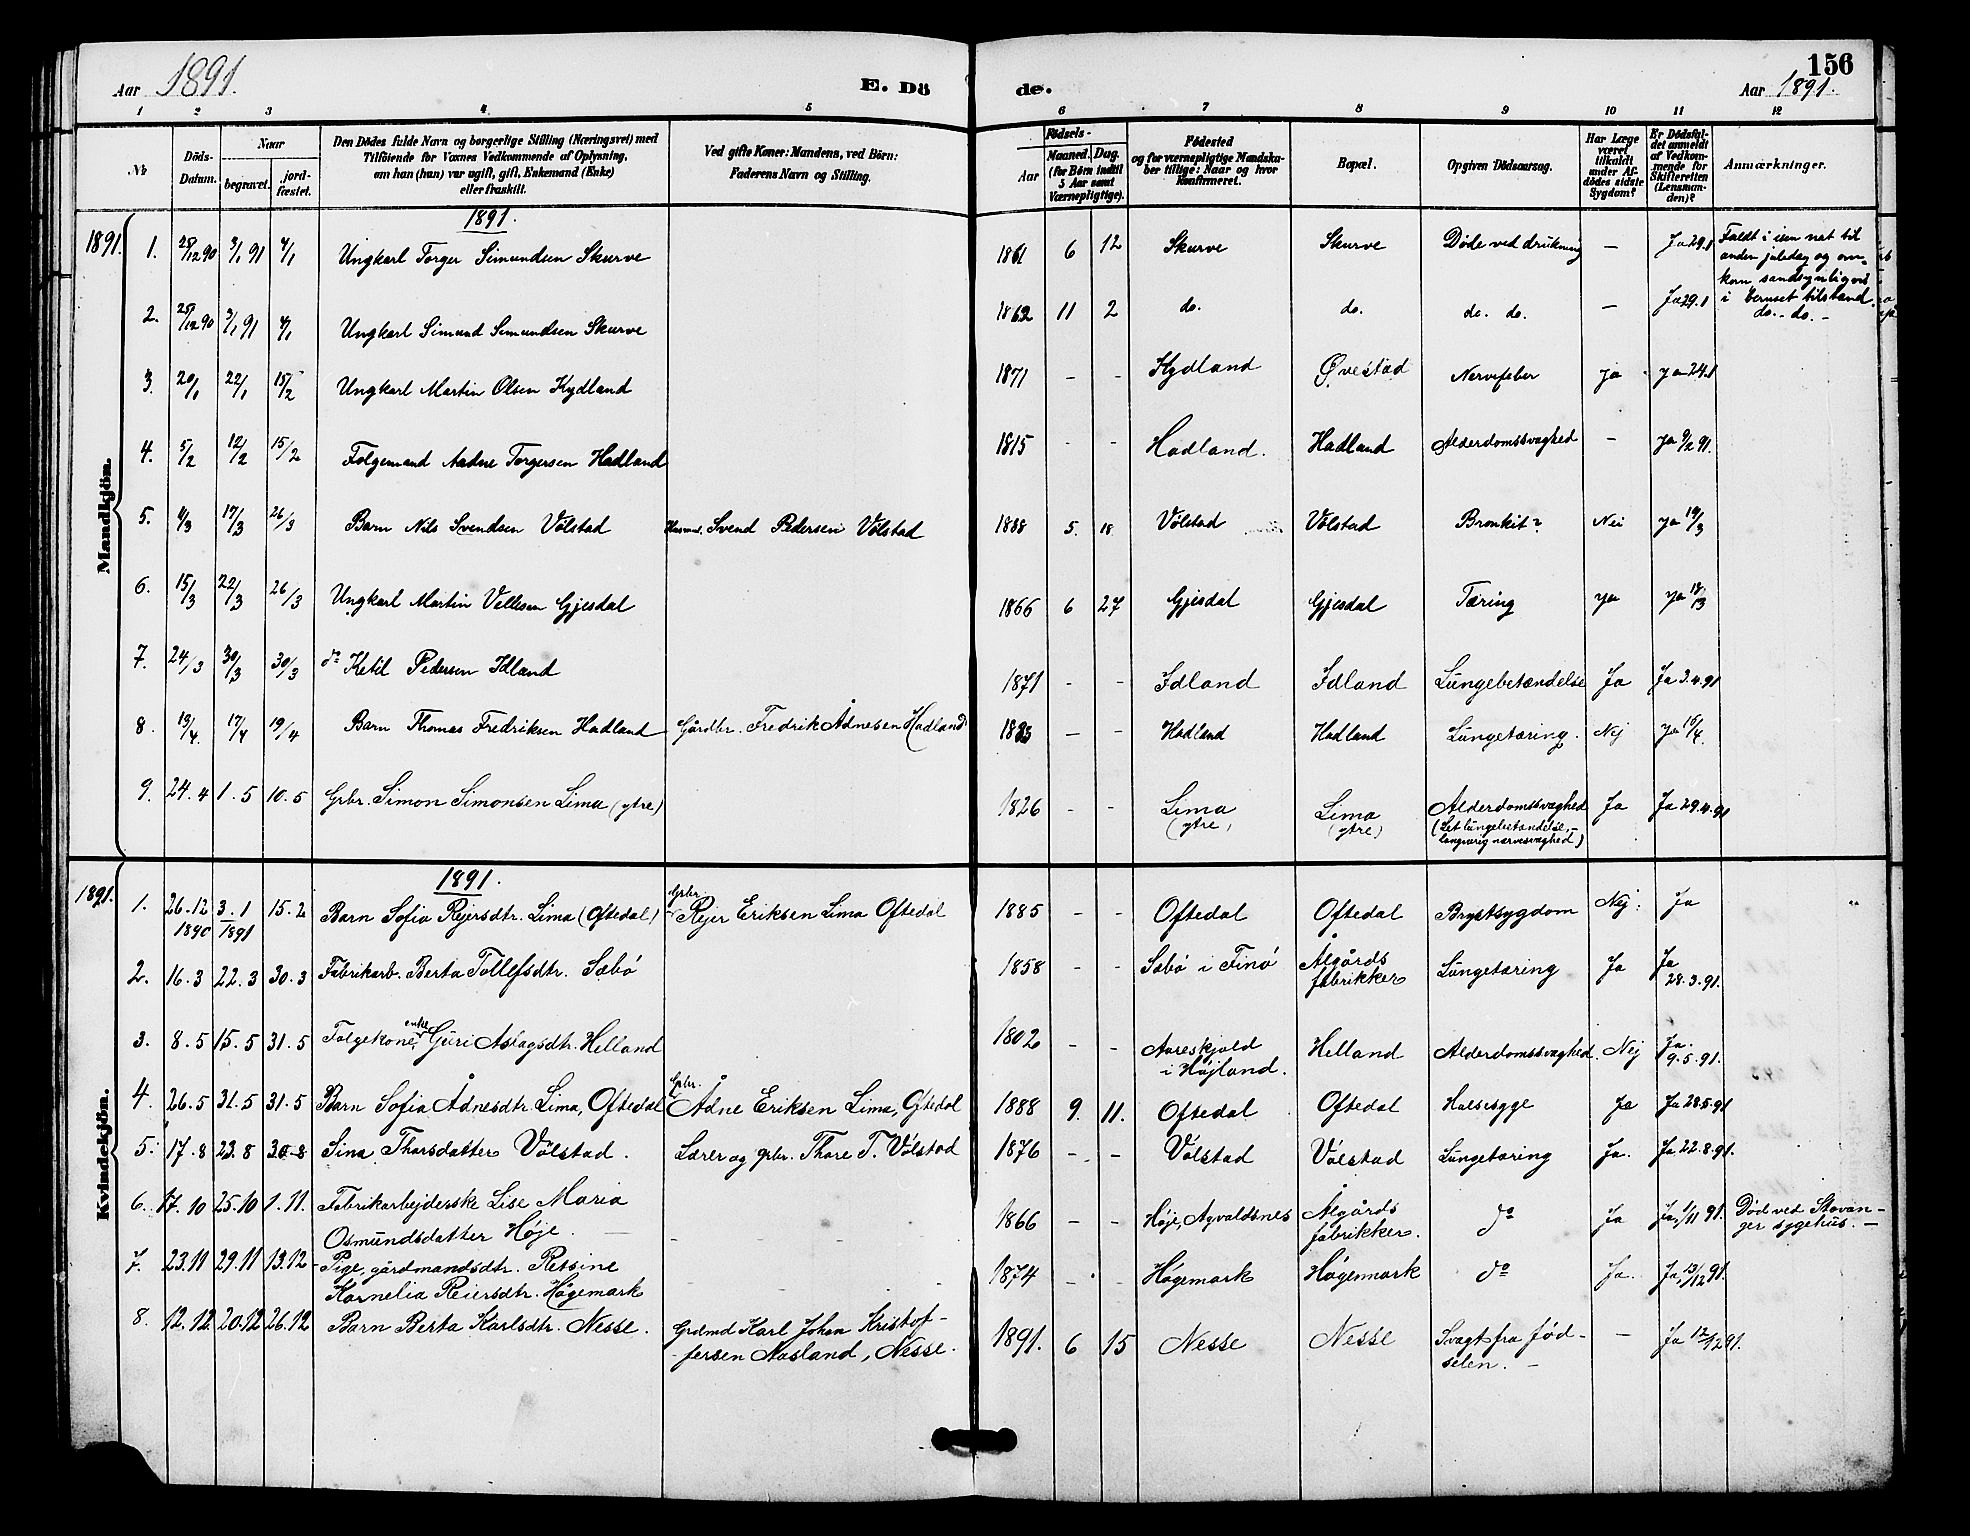 156
Aar 1891.
E. Dö
de.
Aar 1891.
1 2 3 4 5 6 7 8 9 10 11 12
No
Döds-Datum.
Naar
begravet.
jord-fæstet.
Den Dödes fulde Navn og borgerlige Stilling (Næringsvei) med
Tilföiende for Voxnes Vedkommende af Oplysning,
om han (hun) var ugift, gift, Enkemand (Enke)
eller fraskilt.
Ved gifte Koner: Mandens, ved Börn:
Faderens Navn og Stilling.
Födsels-
Aar
Maaned. Dag.
(for Börn indtil
5 Aar samt
Værnepligtige).
Födested
og for værnepligtige Mandska-
ber tillige: Naar og hvor
konfirmeret.
Bopæl.
Opgiven Dödsaarsag.
Har Læge
været
tilkaldt
under Af-
dödes sidste
Sygdom?
Er Dödsfal-
det anmeldt
af Vedkom-
mende for
Skifteretten
(Lensman-
den)?
Anmærkninger.
Mandkjön.
1891.
1891. 1. 25/12 90 3/1 91 4/1 Ungkarl Torger Simundsen Skurve 1861 6 12 Skurve Skurve Døde ved drukning — Ja 29.1 Faldt i isen nat til
anden juledag og om-
kom sandsynligvis
i beruset tilstand.
2. 25/12 90 3/1 91 4/1 Ungkarl Simund Simundsen Skurve 1862 11 2 do. do. do. do. — Ja 29.1 do. do. -
3. 20/1 22/1 15/2 Ungkarl Martin Olsen Kydland 1871 - - Kydland Øvestad Nervefeber ja ja 24.1
4. 5/2 12/2 15/2 Folgemand Aadne Torgersen Hadland 1815 - - Hadland. Hadland Alderdomssvaghed — ja 9/2 91.
5. 11/3 17/3 26/3 Barn Nils Svendsen Vølstad Husmd. Svend Pedersen Vølstad 1888 5. 18 Vølstad Vølstad Bronkit? Nei ja 19/3
6. 15/3 22/3 26/3 Ungkarl Martin Vellesen Gjesdal 1866 6 27 Gjesdal Gjesdal Tæring ja ja 18/3
7. 24/3 30/3 30/3 do Ketil Pedersen Idland 1871 - - Idland Idland Lungebetændelse Ja Ja 3.4.91
8. 13/4 17/4 19/4 Barn Thomas Fredriksen Hadland Gårdbr. Fredrik Ådnesen Hadland 1885 - - Hadland Hadland Lungetæring. Nej ja 15/4.
9. 24.4 1.5 10.5 Grbr. Simon Simonsen Lima (ytre) 1826 - - Lima (ytre) Lima (ytre) Alderdomssvaghed
(Let lungebetændelse,-
langvarig nærvesvaghed) Ja Ja 29.4.91
Kvindekjön.
1891.
1891. 1. 26.12 1890 3.1 1891 15.2 Barn Sofia Rejersdtr. Lima (Oftedal) Grbr. Rejer Eriksen Lima Oftedal 1885 - - Oftedal Oftedal Brystsygdom Nej. Ja
2. 16.3 22.3 30.3 Fabrikarb. Berta Tollefsdtr. Sæbø 1858 - - Sæbø i Finø Ålgårds
fabrikker Lungetæring Ja Ja
28.3.91.
3. 8.5 15.5 31.5 Folgekone, enke Guri Aslagsdtr. Helland 1802 - - Aareskjold
i Højland. Helland Alderdomssvaghed. Nej Ja.
9.5.91.
4. 26.5 31.5 31.5 Barn Sofia Ådnesdtr. Lima, Oftedal Grbr. Ådne Eriksen Lima, Oftedal 1888 9. 11. Oftedal Oftedal Halsesyge Ja Ja 28.5.91
5. 17.8 23.8 30.8 Sina Tharsdatter Vølstad. Lærer og grbr. Thore T. Vølstad 1876 - - Vølstad Vølstad Lungetæring Ja. Ja 22.8.91.
6. 17.10 25.10 1.11. Fabrikarbejderske Lise Maria
Osmundsdatter Høje. 1866 - - Høje, Agvaldsnes Ålgårds
fabrikker. do Ja Ja 1/11 91. Død ved Stavan-
ger sygehus. —
7. 23.11 29.11 13.12 Pige, gårdmandsdtr. Retsine
Kornelia Reiersdtr. Høgemark 1874 - - Høgemark Høgemark do Ja. Ja 13/12 91.
8. 12.12. 20.12 26.12 Barn Berta Karlsdtr. Nesse. Grdmd Karl Johan Kristof-
fersen Aasland, Nesse. 1891. 6 15 Nesse Nesse Svagt fra fød-
selen. — — Ja 12/12 91.